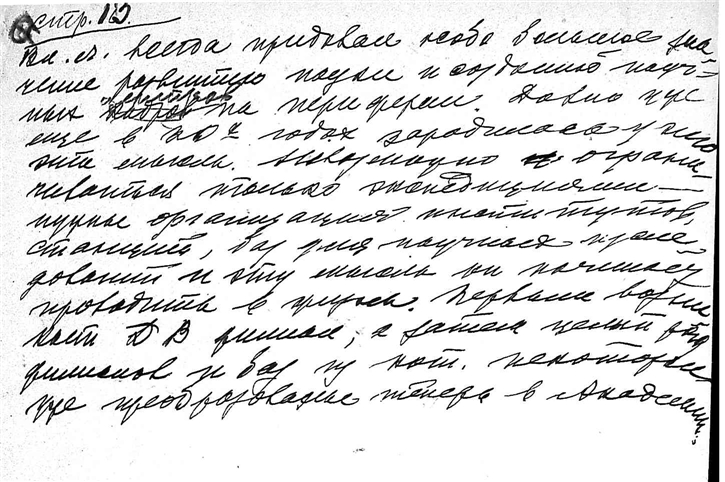 стр. 10.
Вл. л. всегда придавал особо большое зна-
чение развитию науки и созданию науч-
ных центров на периферии. Давно уже
еще в 20х годах зародилась у него
эта мысль. Невозможно ограни-
чиваться только экспедициями —
нужны организация институтов,
станций, баз для научных иссле-
дований и эту мысль он начинает
проводить в жизнь. Первым возник
ДВ филиал, а затем целый ряд
филиалов и баз из кот. некоторые
уже преобразованы теперь в Академии.